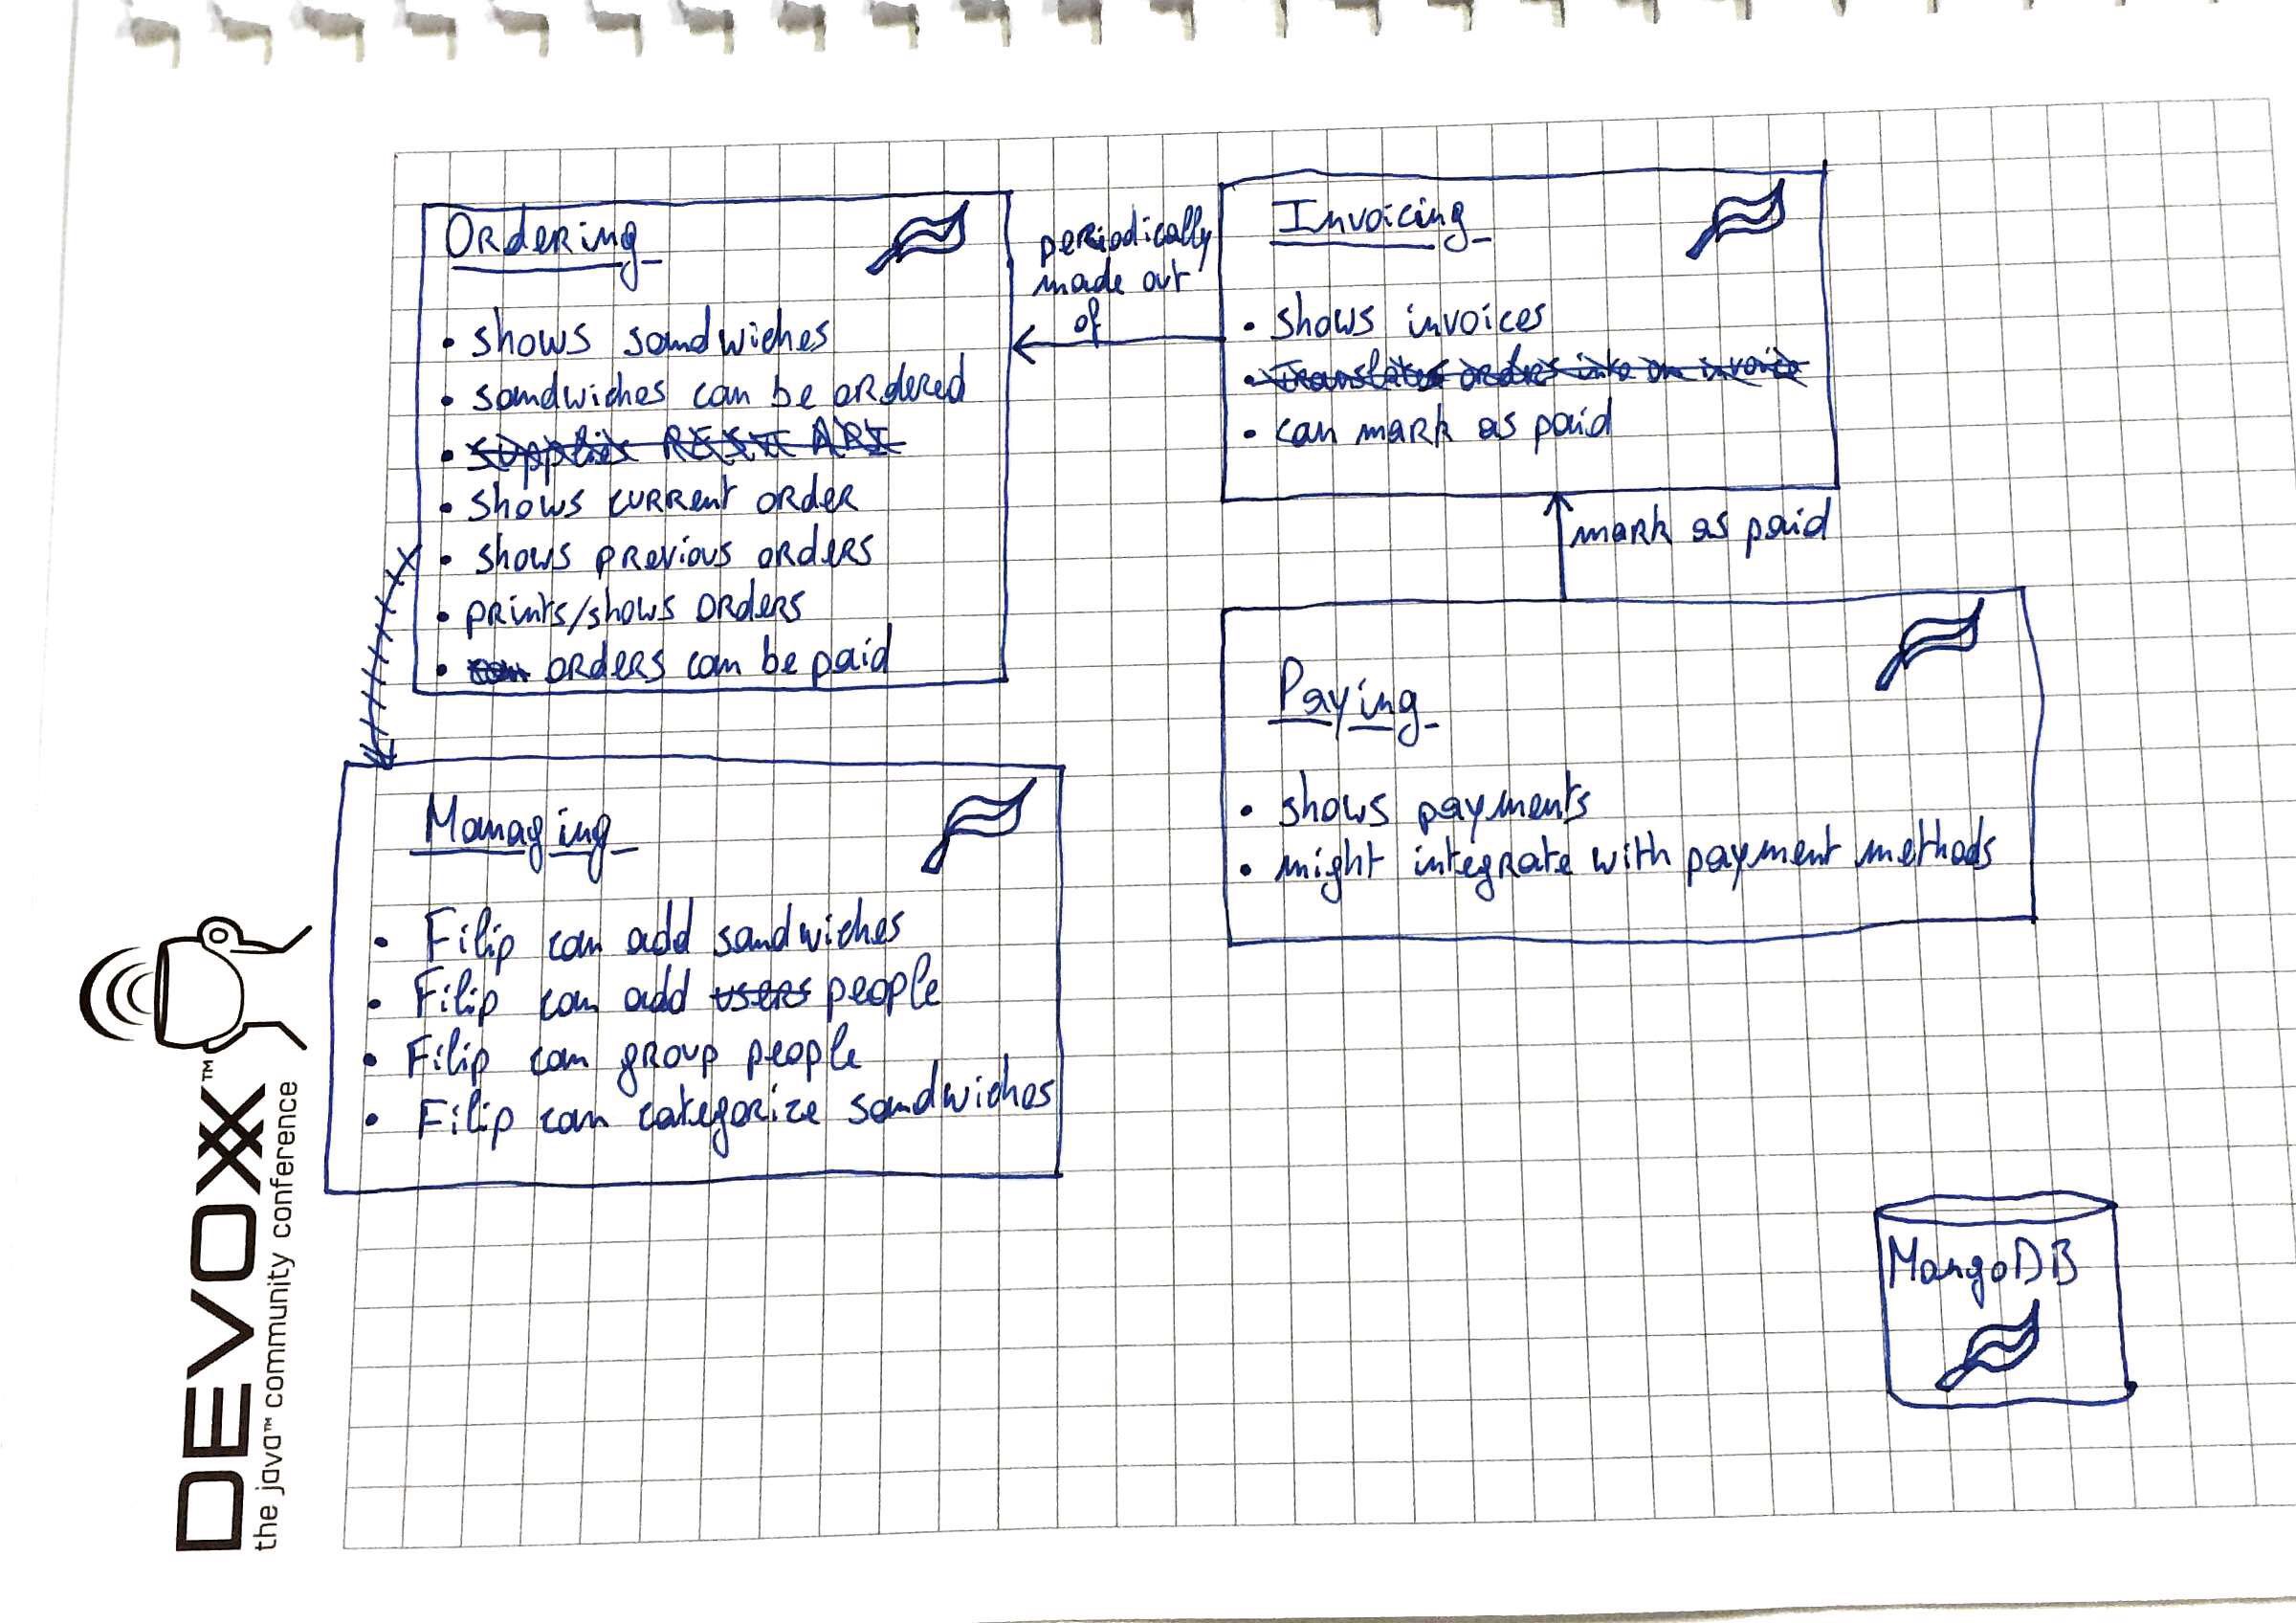 Ordering
• shows sandwiches
• sandwiches can be ordered
• supplies REST API
• shows current order
• shows previous orders
• prints/shows orders
• can orders can be paid
periodically
made out
of
Invoicing
• shows invoices
• translates orders into an invoice
• can mark as paid
mark as paid
Paying
• shows payments
• might integrate with payment methods
Managing
• Filip can add sandwiches
• Filip can add users people
• Filip can group people
• Filip can categorize sandwiches
MongoDB
DEVOXX™
the java™ community conference